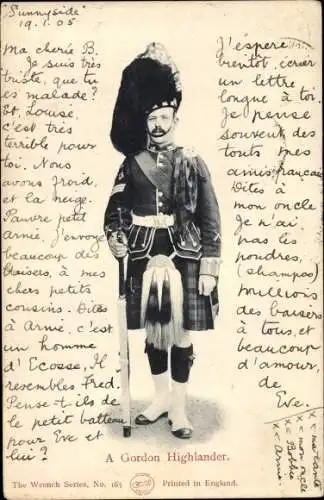 "Sunnyside"
19.1.05
Ma cherie B.
Je suis très
triste, que tu
es malade?
Et, Louise,
c'est très
terrible pour
toi. Nous
avons froid,
et la neige.
Pauvre petit
armié, J'envoye
beaucoup des
baisers, à mes
chers petits
cousins. Dites
à Armié, c'est
un homme
d'Ecosse, Il
resembles Fred.
Pense-t-ils de
le petit bateau
pour Eve et
lui?
J'espère
bientôt, ècrier
un lettre
longue à toi.
Je pense
souvent des
touts mes
amis français
Dites à
mon oncle
Je n'ai
pas les
poudres,
(shampos)
Millions
des baisers
à tous, et
beaucoup
d'amour,
de
Eve.
×× ma tante
×× mon oncle
×× Bobbie
×× Armié
A Gordon Highlander.
The Wrench Series, No. 165
Printed in England.